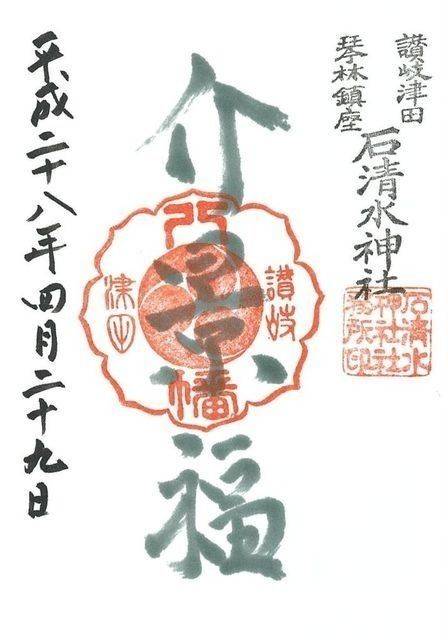 讚岐津田
琴林鎮座
石清水神社
石清水
神社社
務所印
介景福
八幡
讚岐
津田
平成二十八年四月二十九日